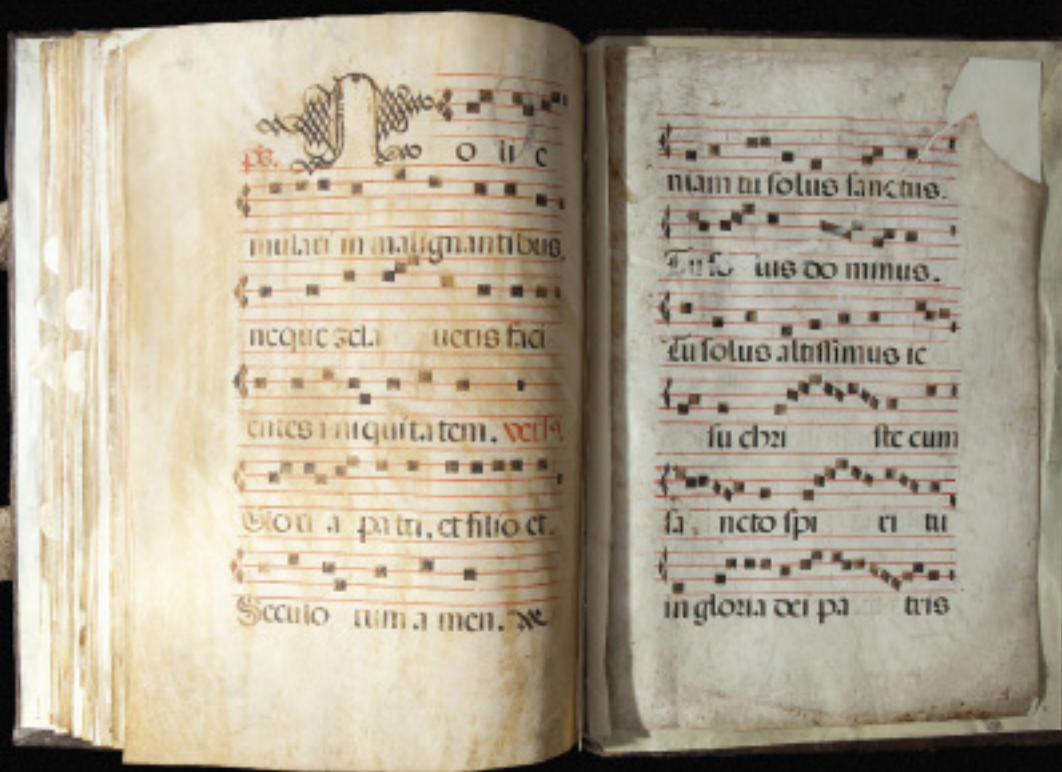 ps. N o li e
mulari in malignantibus.
neque zela ueris faci
entes iniquitatem. vers9.
Glori a patri, et filio et.
Seculo rum a men. 
niam tu solus sanctus.
Tu so lus do minus.
Tu solus altissimus ie
su chri ste cum
sa ncto spi ri tu
in gloria dei pa tris